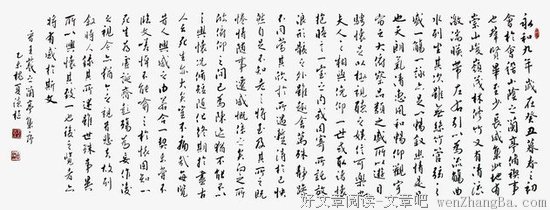 永和九年歲在癸丑暮春之初
會於會稽山陰之蘭亭脩禊事
也群賢畢至少長咸集此地有
崇山峻嶺茂林脩竹又有清流
激湍映帶左右引以為流觴曲
水列坐其次雖無絲竹管弦之
盛一觴一詠亦足以暢敘幽情是日
也天朗氣清惠風和暢仰觀宇
宙之大俯察品類之盛所以遊目
騁懷足以極視聽之娛信可樂也
夫人之相與俯仰一世或取諸懷
抱晤言一室之內或因寄所託放
浪形骸之外雖趣舍萬殊靜躁
不同當其欣於所遇暫得於己快
然自足不知老之將至及其所之既
倦情隨事遷感慨係之矣向之所
欣俯仰之間已為陳迹猶不能不以
之興懷況脩短隨化終期於盡古
人云死生亦大矣豈不痛哉每覽
昔人興感之由若合一契未嘗不
臨文嗟悼不能喻之於懷固知一
死生為虛誕齊彭殤為妄作後
之視今亦猶今之視昔悲夫故列
敘時人錄其所述雖世殊事異
所以興懷其致一也後之覽者亦
將有感於斯文
書王羲之蘭亭集序
好文章阅读-文章吧.wenZhangBa.Com